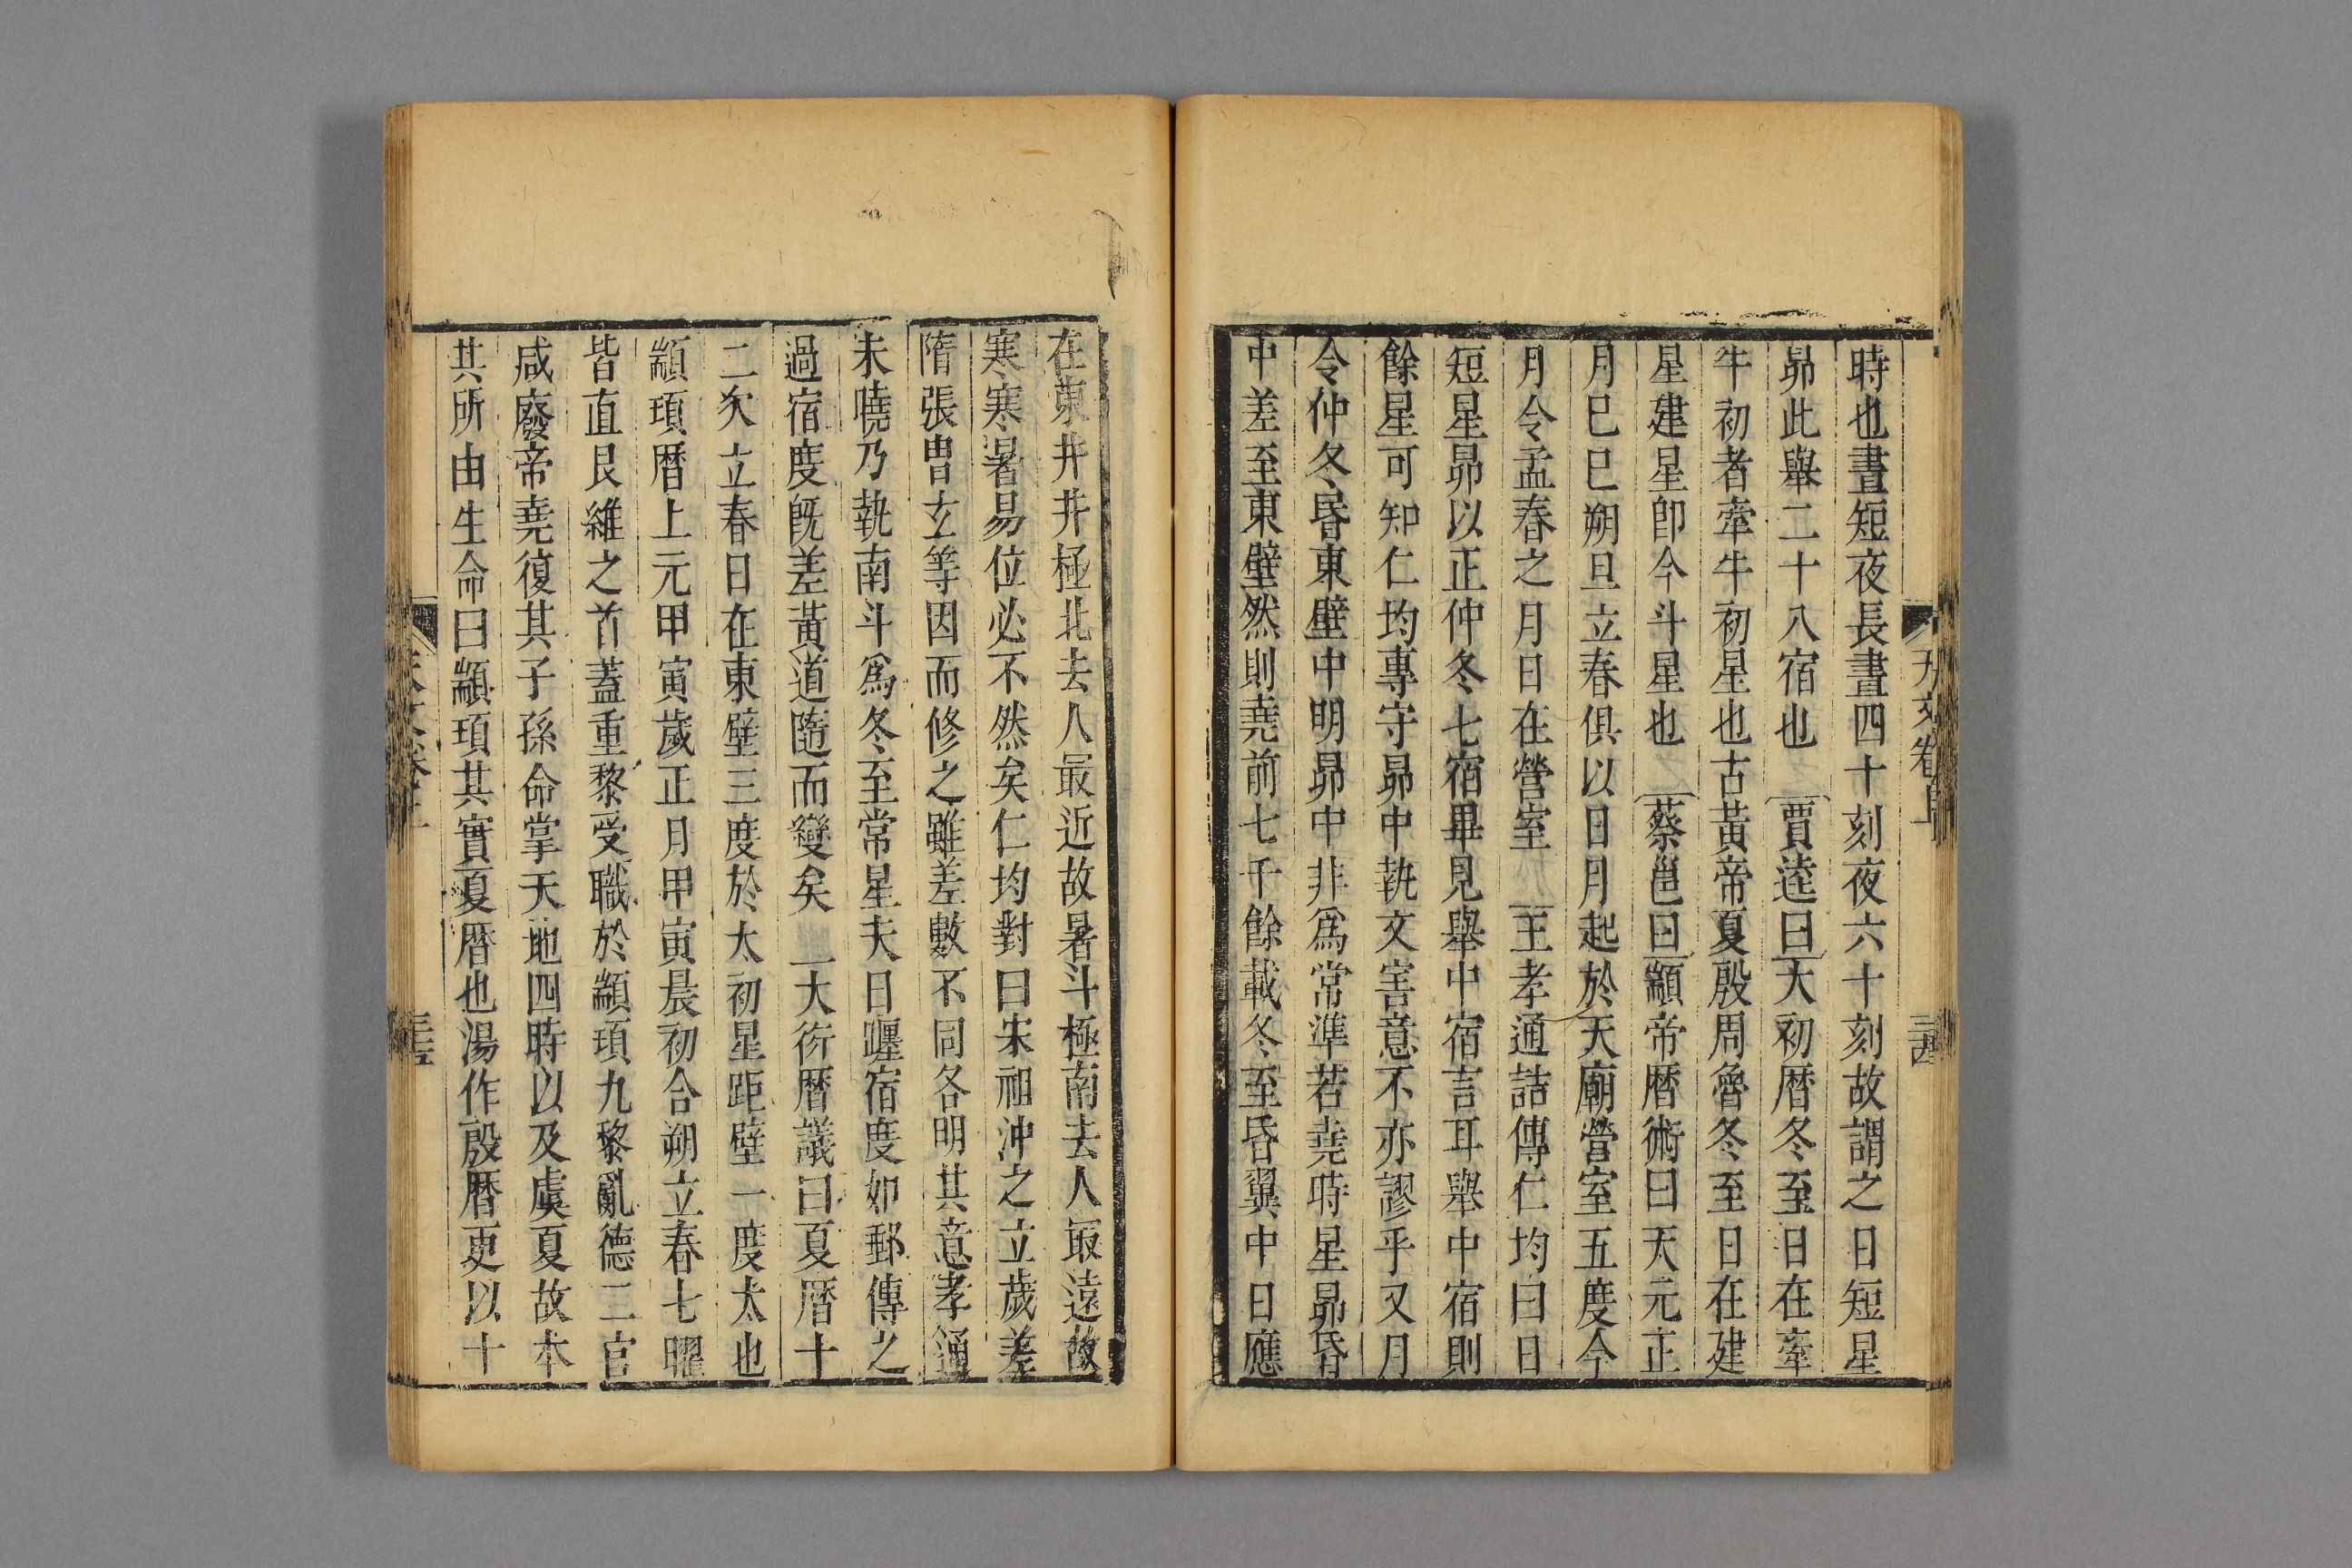 時也晝短夜長晝四十刻夜六十刻故謂之日短星
昴此舉二十八宿也 賈逵曰大初暦冬至日在牽
牛初者牽牛初星也古黃帝夏殷周魯冬至日在建
星建星即今斗星也 蔡邕曰顓帝暦術曰天元正
月巳巳朔旦立春俱以日月起於天廟營室五度今
月令孟春之月日在營室 王孝通詰傳仁均曰日
短星昴以正仲冬七宿畢見舉中宿言耳舉中宿則
餘星可知仁均專守昴中執文害意不亦謬乎又月
令仲冬昏東壁中明昴中非爲常準若堯時星昴昏
中差至東壁然則堯前七千餘載冬至昏翼中日應
在東井井極北去人最近故暑斗極南去人最遠故
寒寒暑易位必不然矣仁均對曰宋祖沖之立歲差
隋張胄玄等因而修之雖差數不同各明其意孝通
未曉乃執南斗爲冬至常星夫日躔宿度如郵傳之
過宿度旣差黃道隨而變矣 大衍暦議曰夏暦十
二次立春日在東壁三度於太初星距壁一度太也
顓頊暦上元甲寅歲正月甲寅晨初合朔立春七曜
皆直艮維之首蓋重黎受職於顓頊九黎亂德二官
咸廢帝堯復其子孫命掌天地四時以及虞夏故本
其所由生命曰顓頊其實夏暦也湯作殷暦更以十